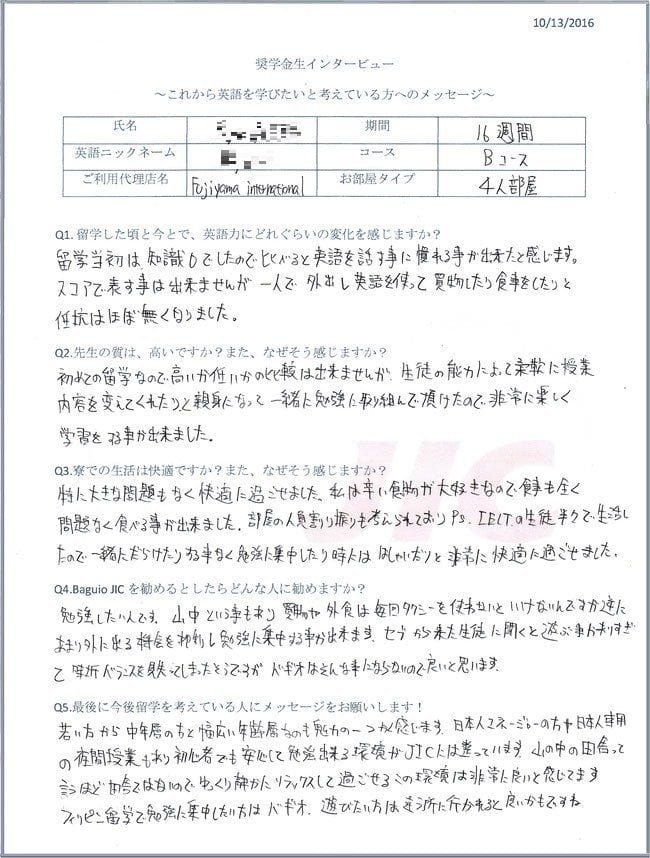 10/13/2016
奨学金生インタビュー
～これから英語を学びたいと考えている方へのメッセージ～
氏名 期間 16週間
英語ニックネーム コース Bコース
ご利用代理店名 Fujiyama international お部屋タイプ 4人部屋
Q1. 留学した頃と今とで、英語力にどれぐらいの変化を感じますか？
留学当初は知識0でしたので比べると英語を話す事に慣れる事が出来たと感じます。
スコアで表す事は出来ませんが 一人で外出し英語を使って買物したり食事をしたりと
抵抗はほぼ無くなりました。
Q2.先生の質は、高いですか？また、なぜそう感じますか？
初めての留学なので高いか低いかの比較は出来ませんが、生徒の能力によって柔軟に授業
内容を変えてくれたりと親身になって一緒に勉強に取り組んで頂けたので、非常に楽しく
学習をする事が出来ました。
JIC
Q3.寮での生活は快適ですか？また、なぜそう感じますか？
特に大きな問題もなく快適に過ごせました。私は辛い食物が大好きなので食事も全く
問題なく食べる事が出来ました。部屋の人員割り振りも考えられており Ps. IELTの生徒 で生活し
たので一緒にだらけたりする事なく勉強に集中したり時には はしゃいだりと非常に快適に過ごせました。
Q4.Baguio JIC を勧めるとしたらどんな人に勧めますか？
勉強したい人です。山中という事もあり買物や外食は毎回タクシーを使わないといけないんですが逆に
あまり外に出る機会を し勉強に集中する事が出来ます。セブから来た生徒に聞くと遊ぶ事がありすぎ
て バランスを失ってしまったそうですが バギオはそんな事にならないので良いと思います。
Q5.最後に今後留学を考えている人にメッセージをお願いします！
若い方から中年層の方と幅広い年齢層なのも魅力の一つかと感じます。日本人マネージャーの方や日本人専用
の夜間授業もあり初心者でも安心して勉強出来る環境がJICには整っています。山の中の田舎って
言うほど田舎ではないのでゆっくり静かにリラックスして過ごせるこの環境は非常に良いと感じてます
フィリピン留学で勉強に集中したい方は バギオ、遊びたい方は違う所に行かれると良いかもですね